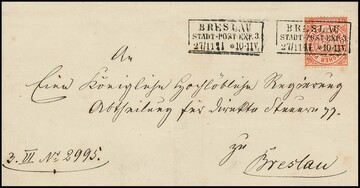 BRESLAU
STADT-POST-EXP. 3
27/11 71 * 10-11V.
BRESLAU
STADT-POST-EXP. 3
27/11 71 * 10-11V.
An
Eine Königliche Hochlöbliche Regierung
Abtheilung für direkte Steuern pp.
zu
Breslau
3. III. No 2995.